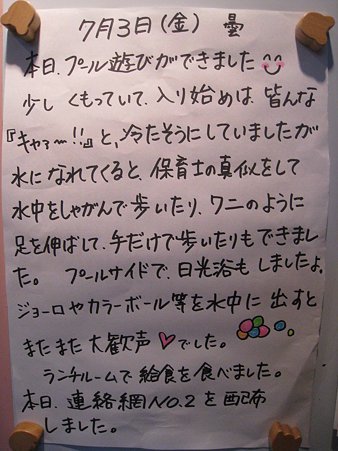 7月3日(金) 曇
本日、プール遊びができました
少しくもっていて、入り始めは皆んな
『キャァ〜!!』と、冷たそうにしていましたが
水になれてくると、保育士の真似をして
水中をしゃがんで歩いたり、ワニのように
足を伸ばして、手だけで歩いたりもできまし
た。 プールサイドで、日光浴もしましたよ。
ジョーロやカラーボール等を水中に出すと
またまた大歓声♡でした。
ランチルームで給食を食べました。
本日、連絡網NO.2を配布
しました。